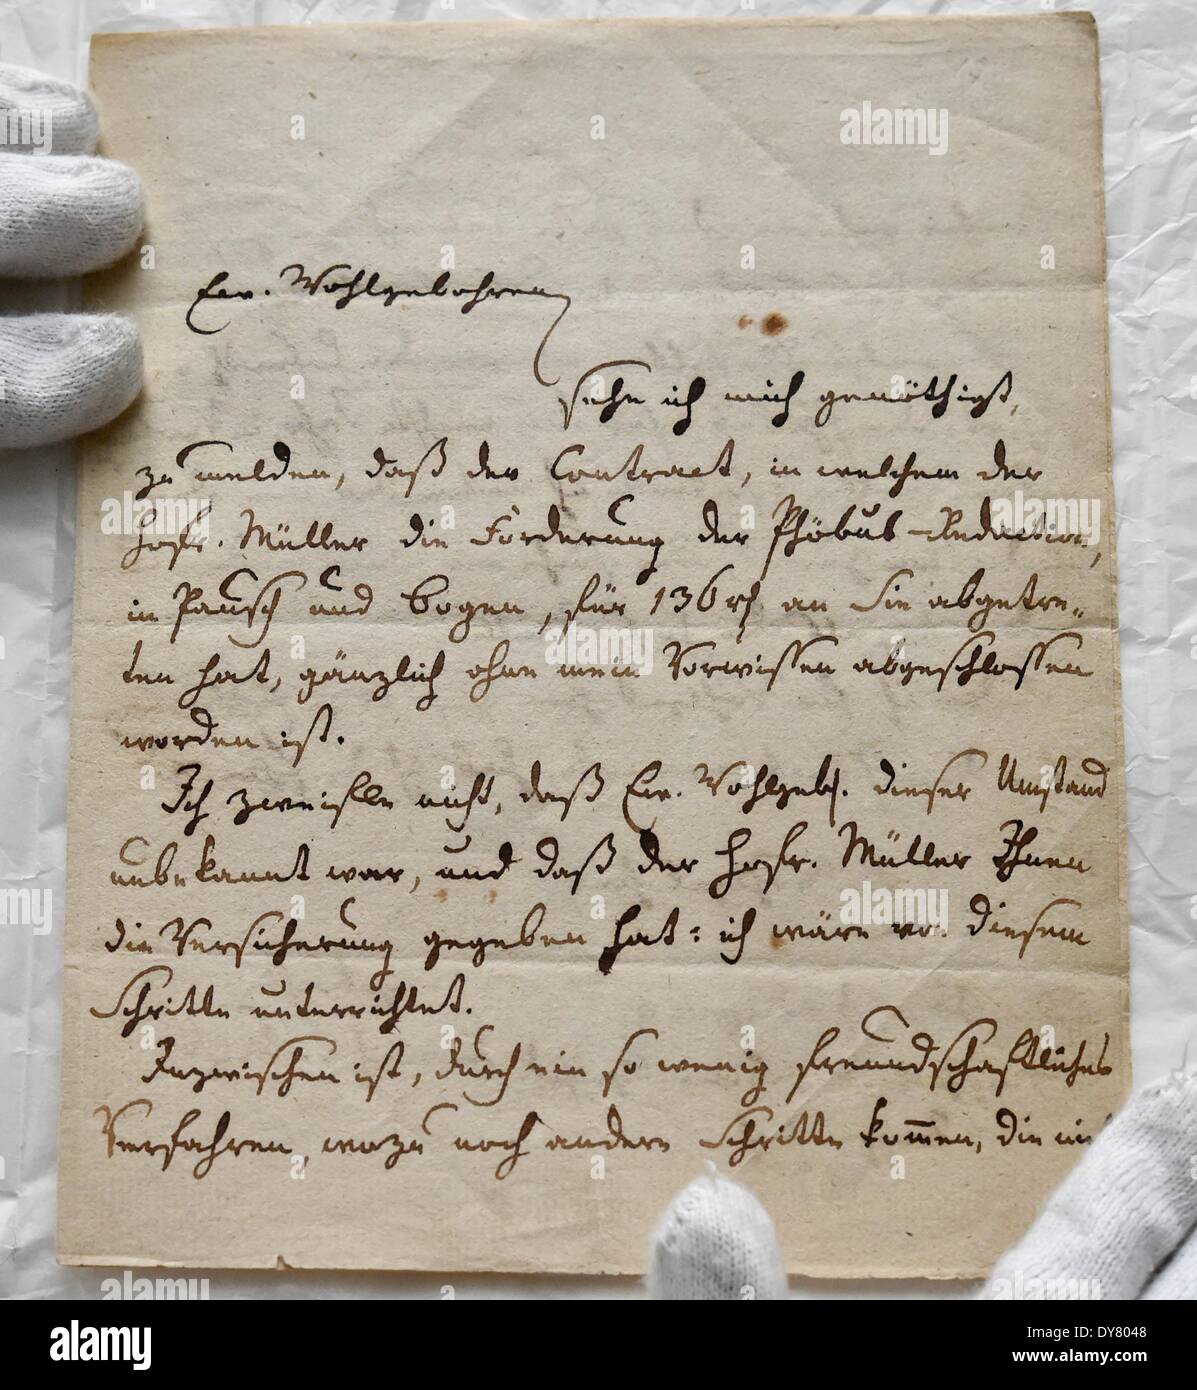 Ew. Wohlgebohren
sehe ich mich genöthigt,
zu melden, daß der Contract, in welchem der
Hofr. Müller die Forderung der Phöbus-Redaction,
in Pausch und Bogen, für 136 rh an Sie abgetre-
ten hat, gänzlich ohne mein Vorwissen abgeschlossen
worden ist.
Ich zweifle nicht, daß Ew. Wohlgeb. dieser Umstand
unbekannt war, und daß der Hofr. Müller Ihnen
die Versicherung gegeben hat: ich wäre von diesem
Schritte unterrichtet.
Inzwischen ist, durch ein so wenig freundschaftliches
Verfahren, wozu noch andere Schritte kommen, die
alamy
Image ID: DY8048
www.alamy.com